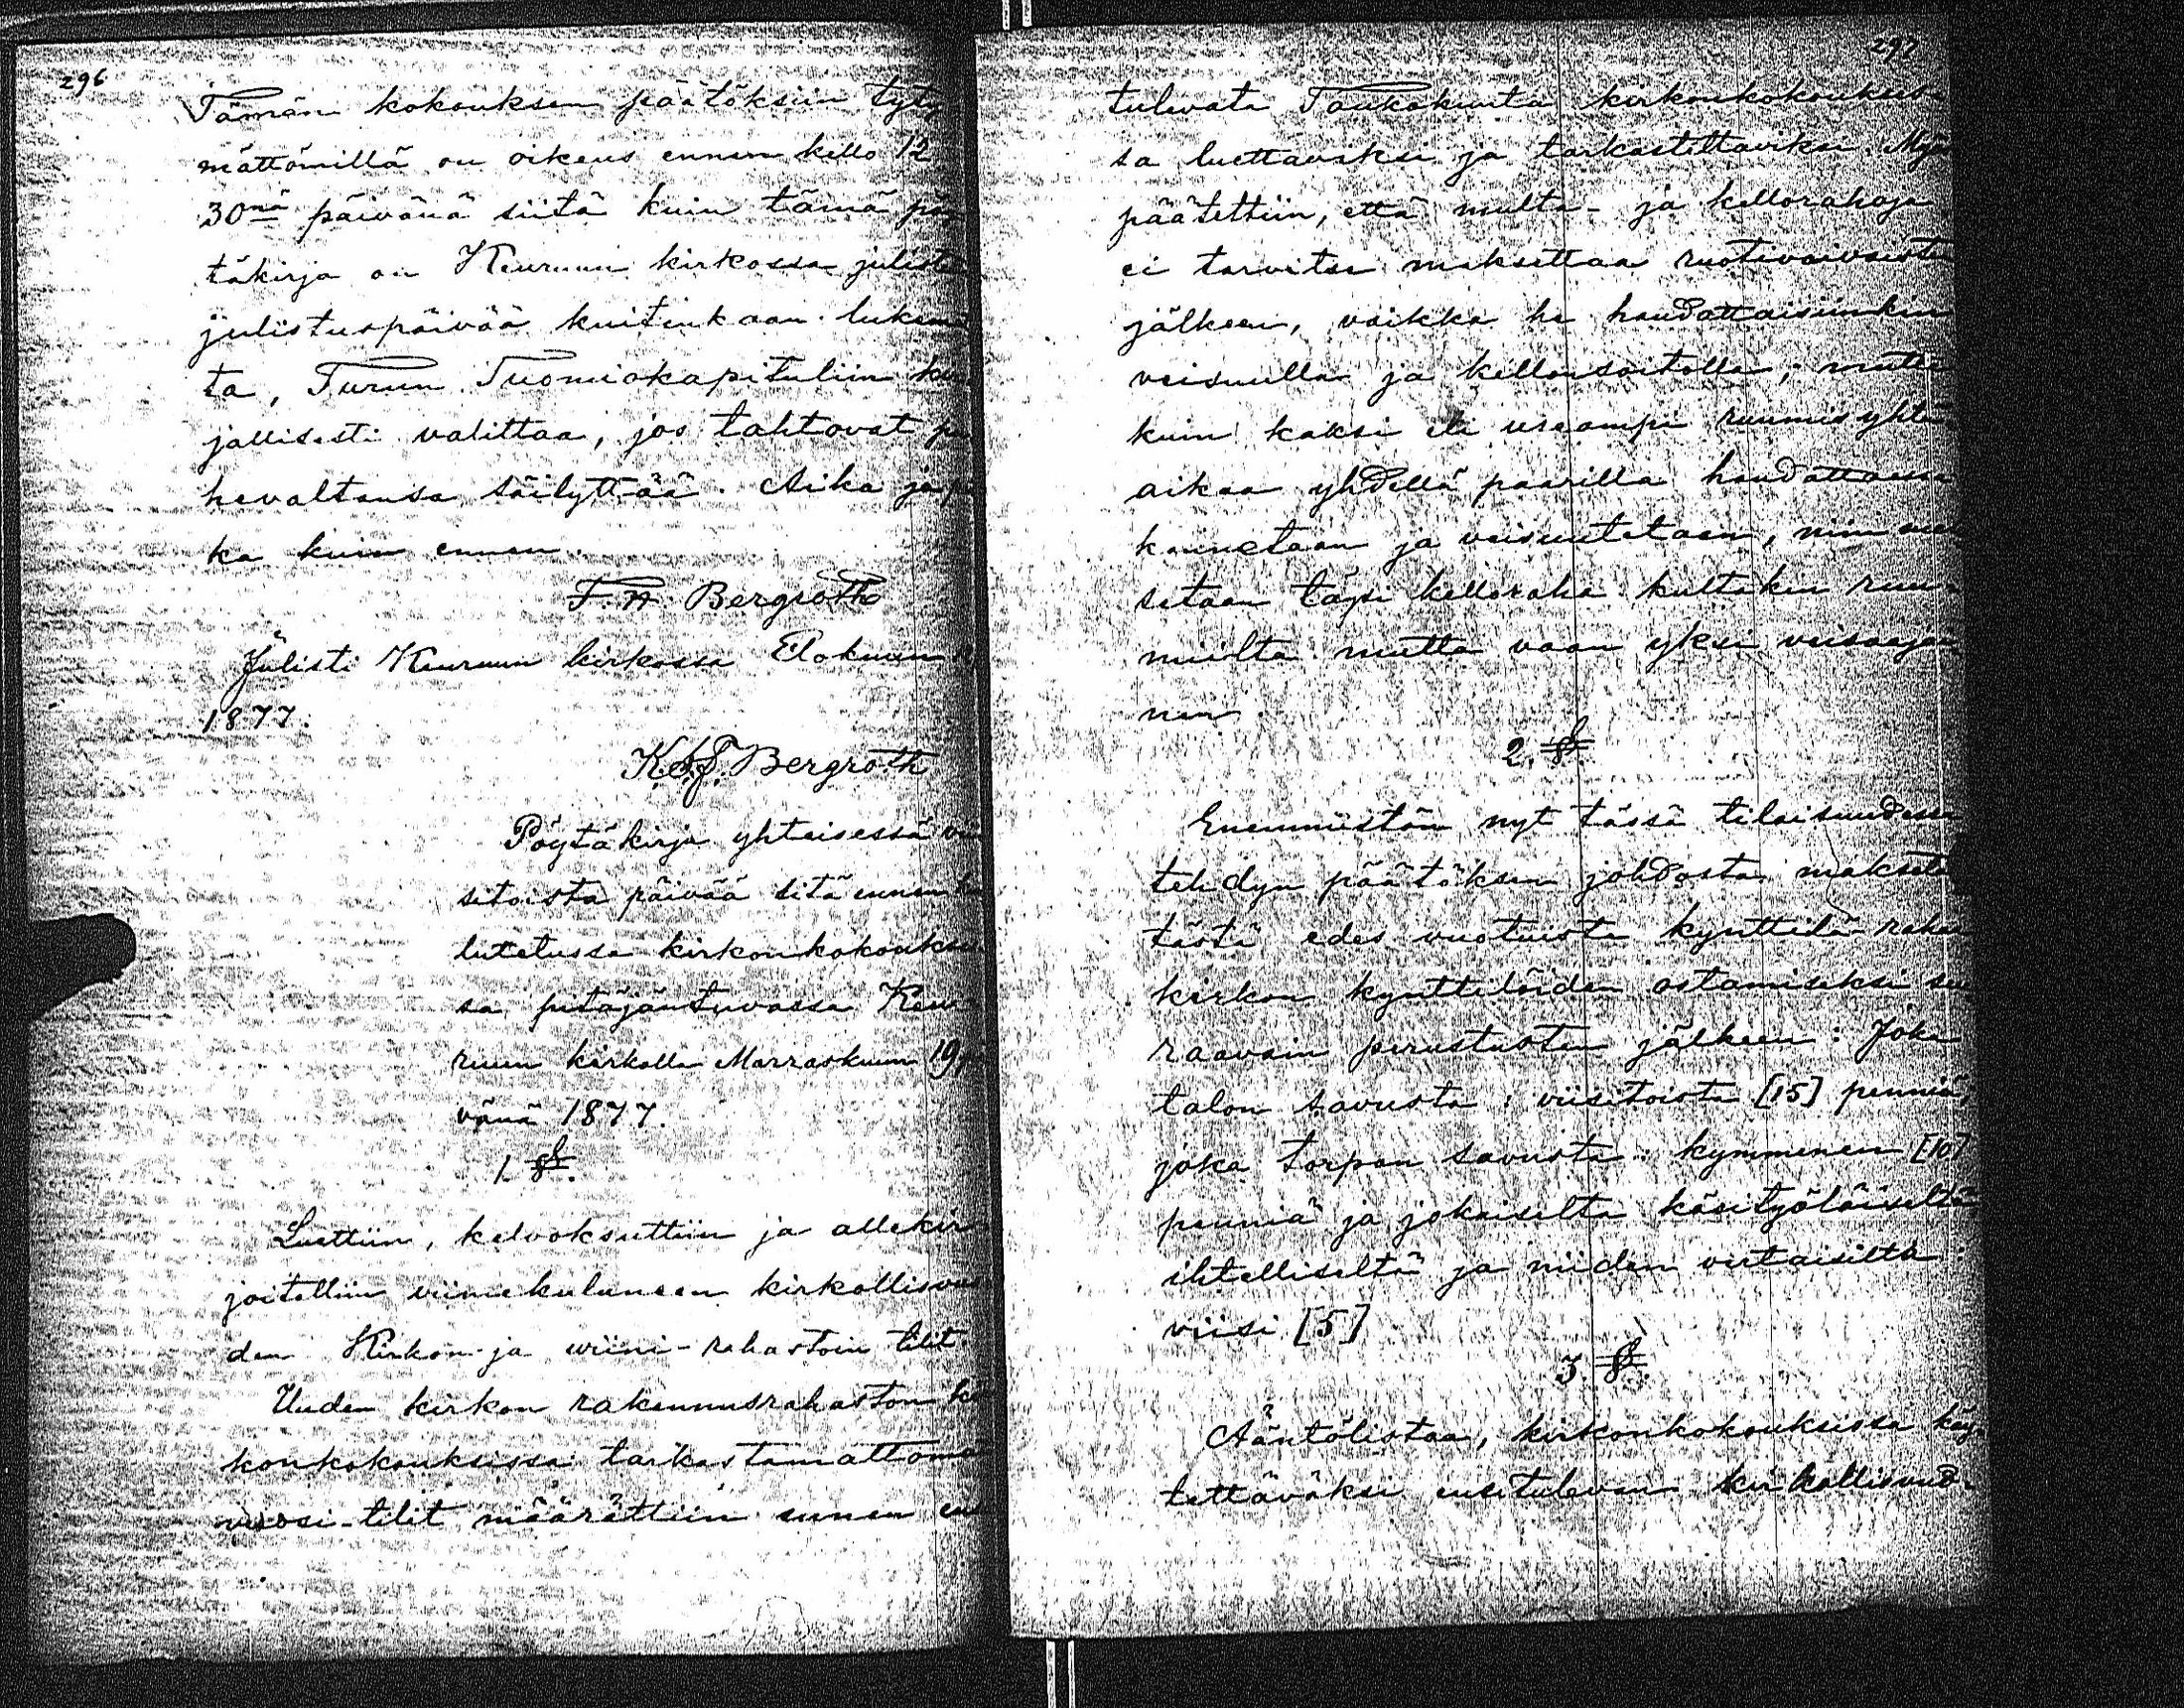 296
Tämän kokouksen päätöksiin tyty
mättömillä on oikeus ennen kello 12
30nä päivänä siitä kuin tämä pöy
täkirja on Keuruun kirkossa julistettu
julistuspäivää kuitenkaan luke
ta, Turun Tuomiokapituliin kir
jallisesti valittaa, jos tahtovat pu
hevaltansa säilyttää. Aika ja
ka kuin ennen.
F. W. Bergroth
Julisti Keuruun kirkossa Elokuun
1877.
K. J. Bergroth
Pöytäkirja yhteisessä vii
sitoista päivää sitä ennen
lutetussa kirkonkokoukses
sa pitäjäntuvassa Keu-
ruun kirkolla Marraskuun 19,
vänä 1877.
1 §.
Luettiin, kelvoksuttiin ja allekir
joitettiin viimekuluneen kirkollisvuo
den Kirkon- ja wiini-rahastoin tilit
Uuden kirkon rakennusrahaston
konkokouksissa tarkastamattoma
vuosi-tilit määrättiin ennen en
297
tulevata Toukokuuta kirkonkokoukses
sa luettaviksi ja tarkastettaviksi. Myös
päätettiin, että multa- ja kellorahoja
ei tarvitse maksettaa ruotivaivaisten
jälkeen, vaikka he haudattaisiinkin
veisuulla ja kellonsoitolla; mutta
kuin kaksi eli useampi ruumis yhtä
aikaa yhdellä paarilla haudattaessa
kannetaan ja veisuutetaan, niin mak
setaan täysi kelloraha kultakin ruu-
miilta mutta vaan yksi veisaaja
nen
2. §.
Enemmistön nyt tässä tilaisuudessa
tehdyn päätöksen johdosta maksetaan
tästä edes vuotuista kynttilä-rahaa
kirkon kynttilöiden ostamiseksi seu
raavain perustusten jälkeen: Joka
talon savusta: viisitoista [15] penniä,
joka torpan savusta: kymmenen [10]
penniä ja jokaiselta käsityöläiseltä
ihtelliseltä ja niiden vertaisilta:
viisi [5]
3 §.
Ääntölistaa, kirkonkokouksissa käy-
tettäväksi ensitulevan kirkollisvuo-